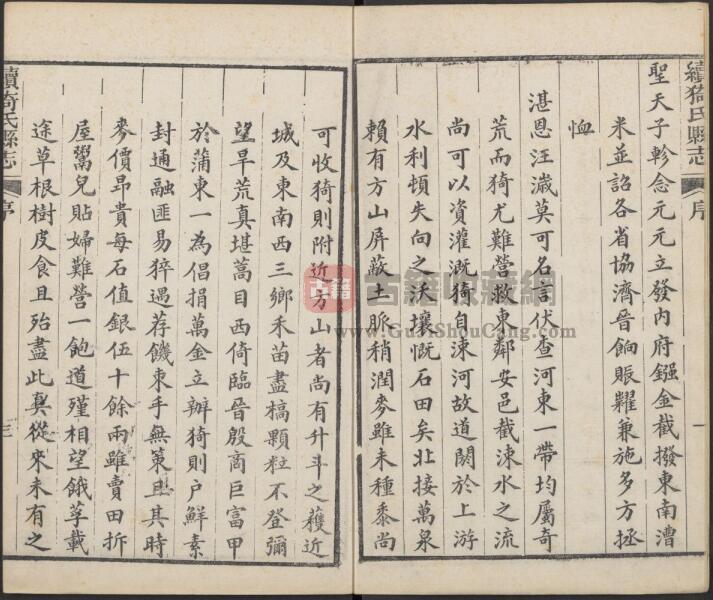 續猗氏縣志
序
一
聖天子軫念元元立發內府鏹金截撥東南漕
米並詔各省協濟晉餉賑糶兼施多方拯
恤
湛恩汪濊莫可名言伏查河東一帶均屬奇
荒而猗尤難營救東鄰安邑截涑水之流
尚可以資灌溉猗自涑河故道閼於上游
水利頓失向之沃壤慨石田矣北接萬泉
賴有方山屏蔽土脈稍潤麥雖未種黍尚
可收猗則附近方山者尚有升斗之穫近
城及東南西三鄉禾苗盡槁顆粒不登彌
望旱荒真堪蒿目西倚臨晉殷商巨富甲
於蒲東一為倡捐萬金立辦猗則戶鮮素
封通融匪易猝遇荐饑束手無策且其時
麥價昂貴每石值銀伍十餘兩雖賣田拆
屋鬻兒貼婦難營一飽道殣相望餓莩載
途草根樹皮食且殆盡此真從來未有之
續猗氏縣志
序
三
古籍
古籍收藏網
www.GuJiShouCang.com